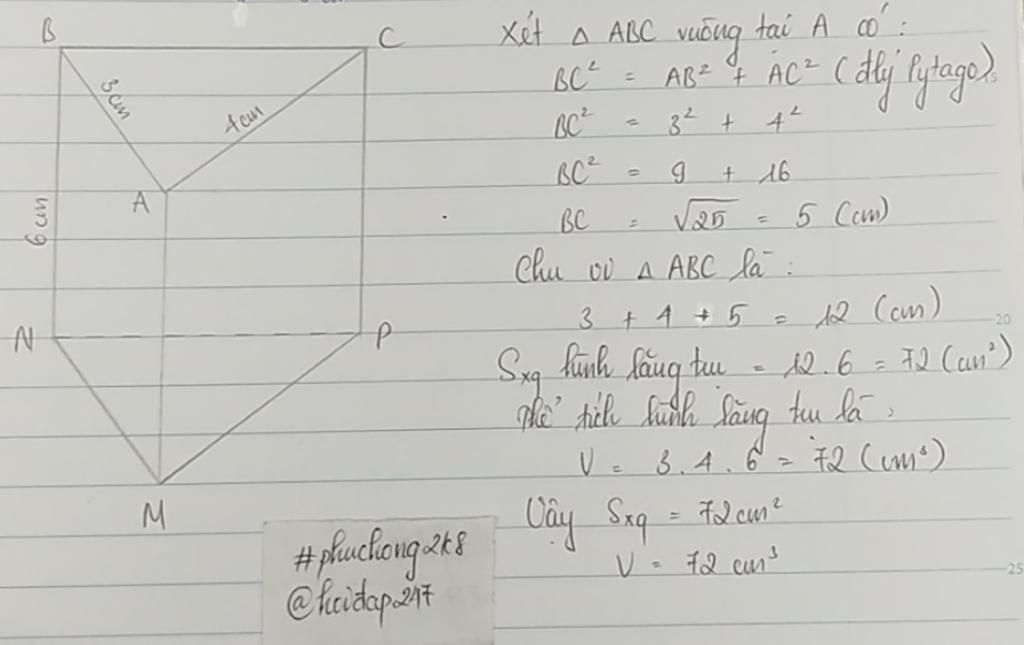 B
C
3cm
4cm
A
6cm
N
P
M
Xét △ ABC vuông tại A có :
BC² = AB² + AC² (đlý Pytago)
BC² = 3² + 4²
BC² = 9 + 16
BC = √25 = 5 (cm)
Chu vi △ ABC là :
3 + 4 + 5 = 12 (cm)
Sxq hình lăng trụ = 12.6 = 72 (cm²)
Thể tích hình lăng trụ là :
V = 3.4.6 = 72 (cm³)
Vậy Sxq = 72 cm²
V = 72 cm³
#phuchong2k8
@hoidap247
20
25